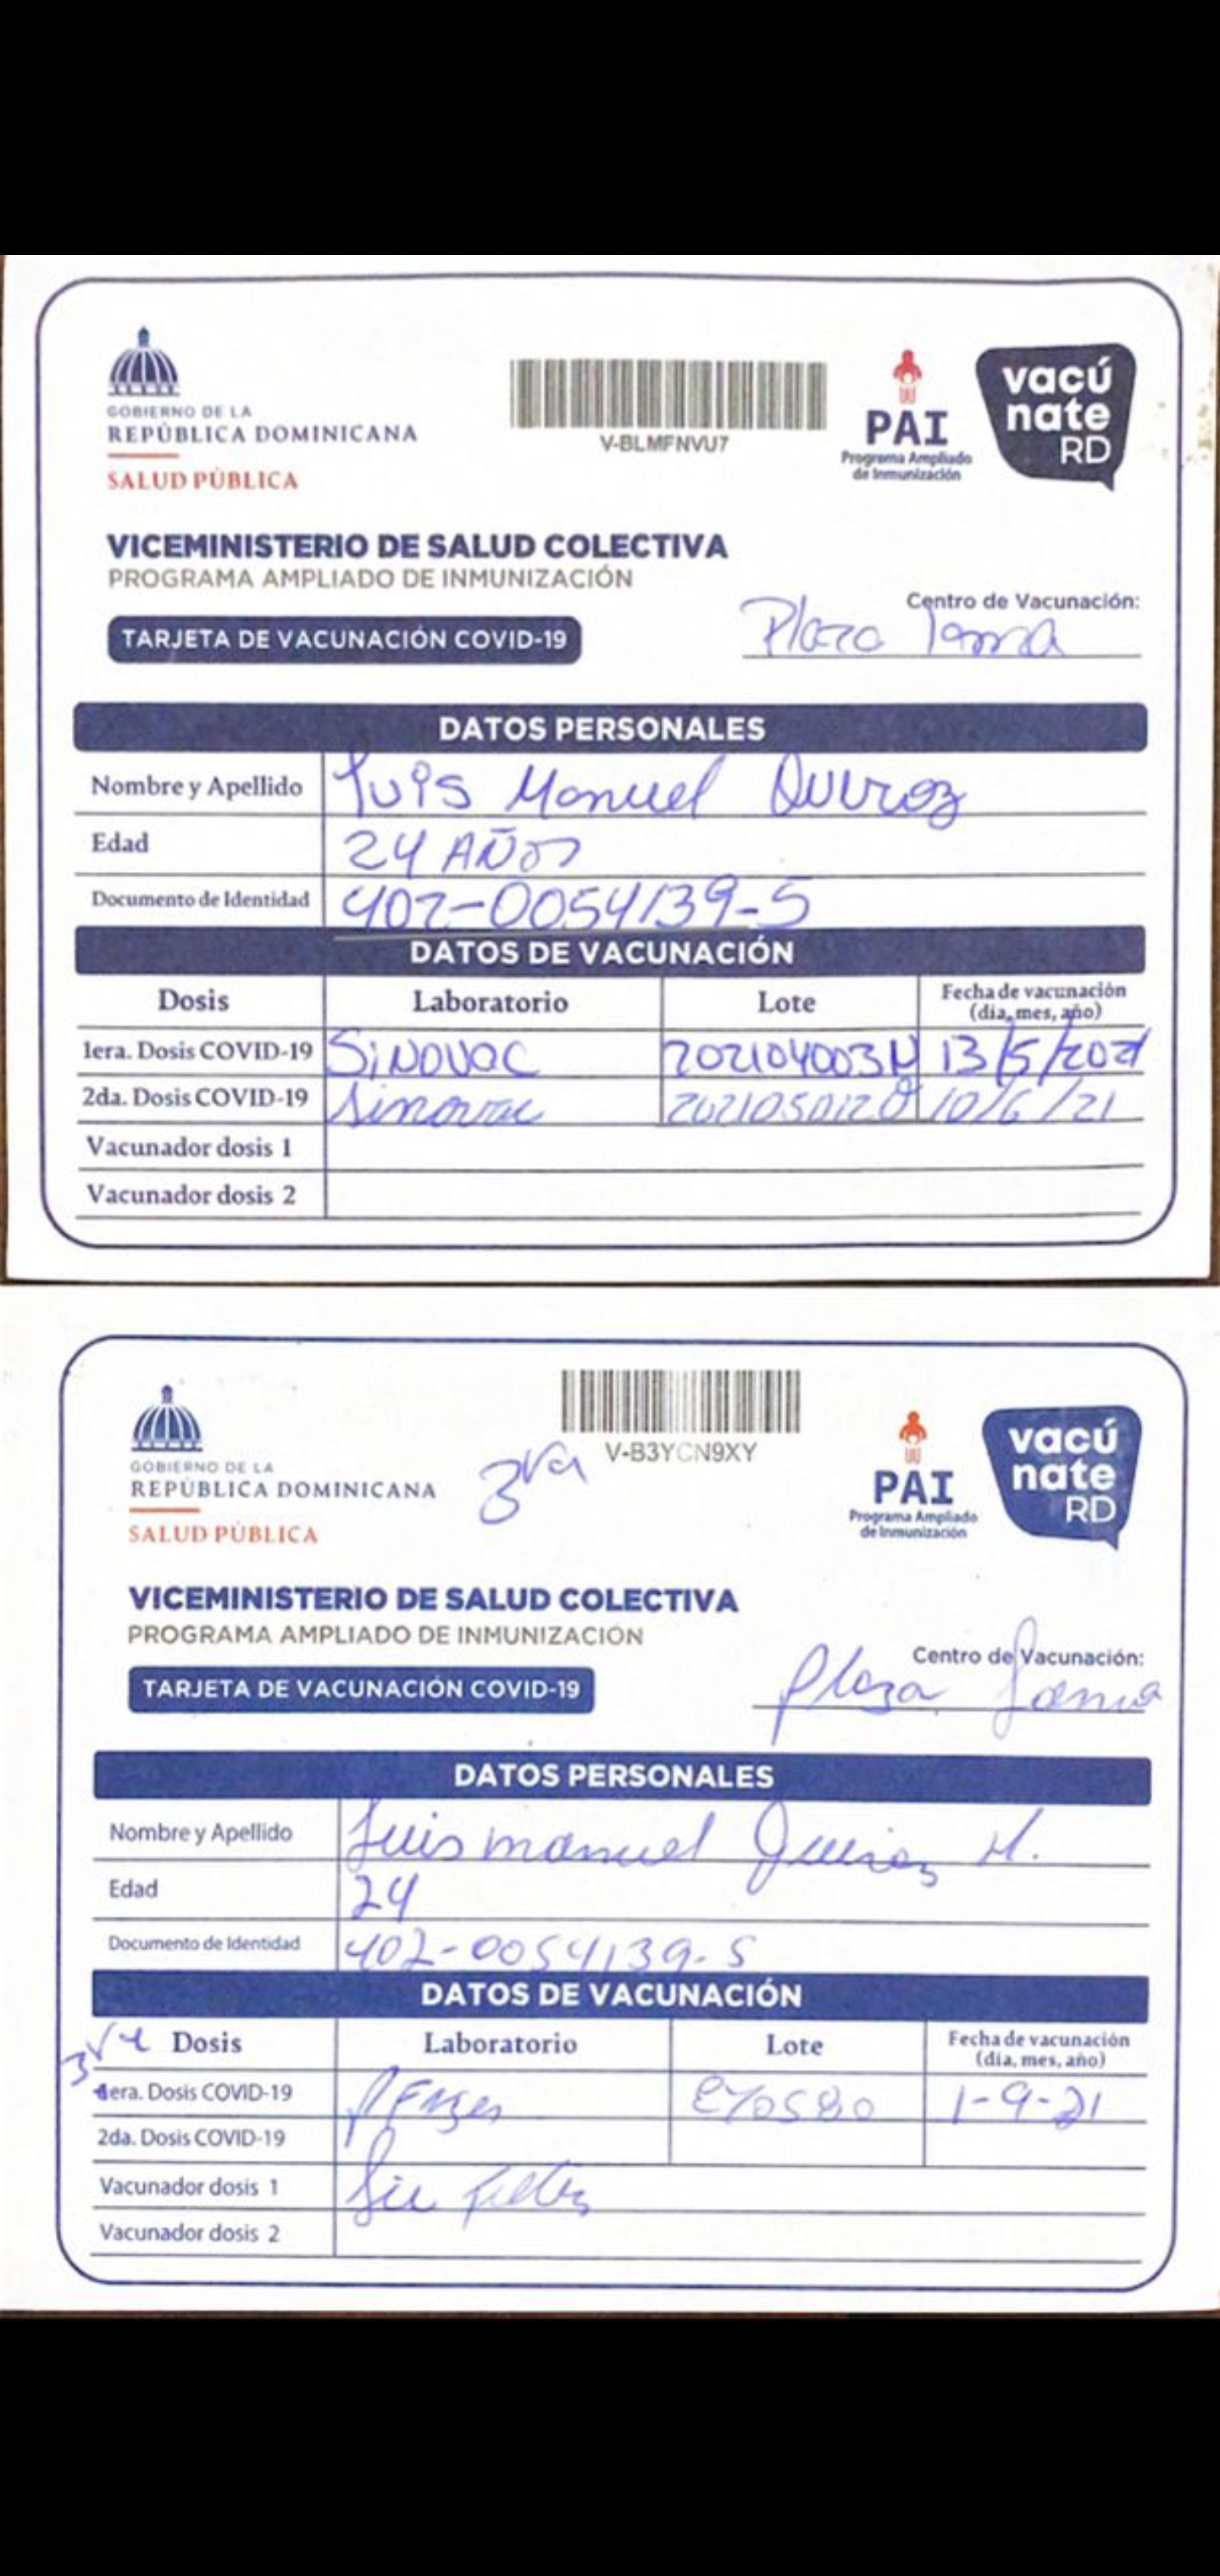 GOBIERNO DE LA
REPÚBLICA DOMINICANA
SALUD PÚBLICA
V-BLMFNVU7
PAI
Programa Ampliado
de Inmunización
vacú
nate
RD
VICEMINISTERIO DE SALUD COLECTIVA
PROGRAMA AMPLIADO DE INMUNIZACIÓN
TARJETA DE VACUNACIÓN COVID-19
Centro de Vacunación:
Plaza lama
DATOS PERSONALES
Nombre y Apellido Luis Manuel Quiroz
Edad 24 AÑOS
Documento de Identidad 402-0054139-5
DATOS DE VACUNACIÓN
Dosis Laboratorio Lote Fecha de vacunación
(día, mes, año)
1era. Dosis COVID-19 SiNOVAC 202104003N 13/5/2021
2da. Dosis COVID-19 Sinovac 10/6/21
Vacunador dosis 1
Vacunador dosis 2
GOBIERNO DE LA
REPÚBLICA DOMINICANA
SALUD PÚBLICA
3ra
V-B3YCN9XY
PAI
Programa Ampliado
de Inmunización
vacú
nate
RD
VICEMINISTERIO DE SALUD COLECTIVA
PROGRAMA AMPLIADO DE INMUNIZACIÓN
TARJETA DE VACUNACIÓN COVID-19
Centro de Vacunación:
Plaza Lama
DATOS PERSONALES
Nombre y Apellido Luis manuel Quiroz M.
Edad 24
Documento de Identidad 402-0054139-5
DATOS DE VACUNACIÓN
Dosis Laboratorio Lote Fecha de vacunación
(día, mes, año)
1era. Dosis COVID-19 EY0580 1-9-21
2da. Dosis COVID-19
Vacunador dosis 1
Vacunador dosis 2